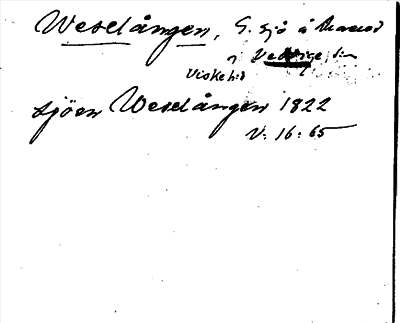 Weselången, G. sjö å
Veddige, sn
Viske hd
sjöen Weselången 1822
V: 16: 65